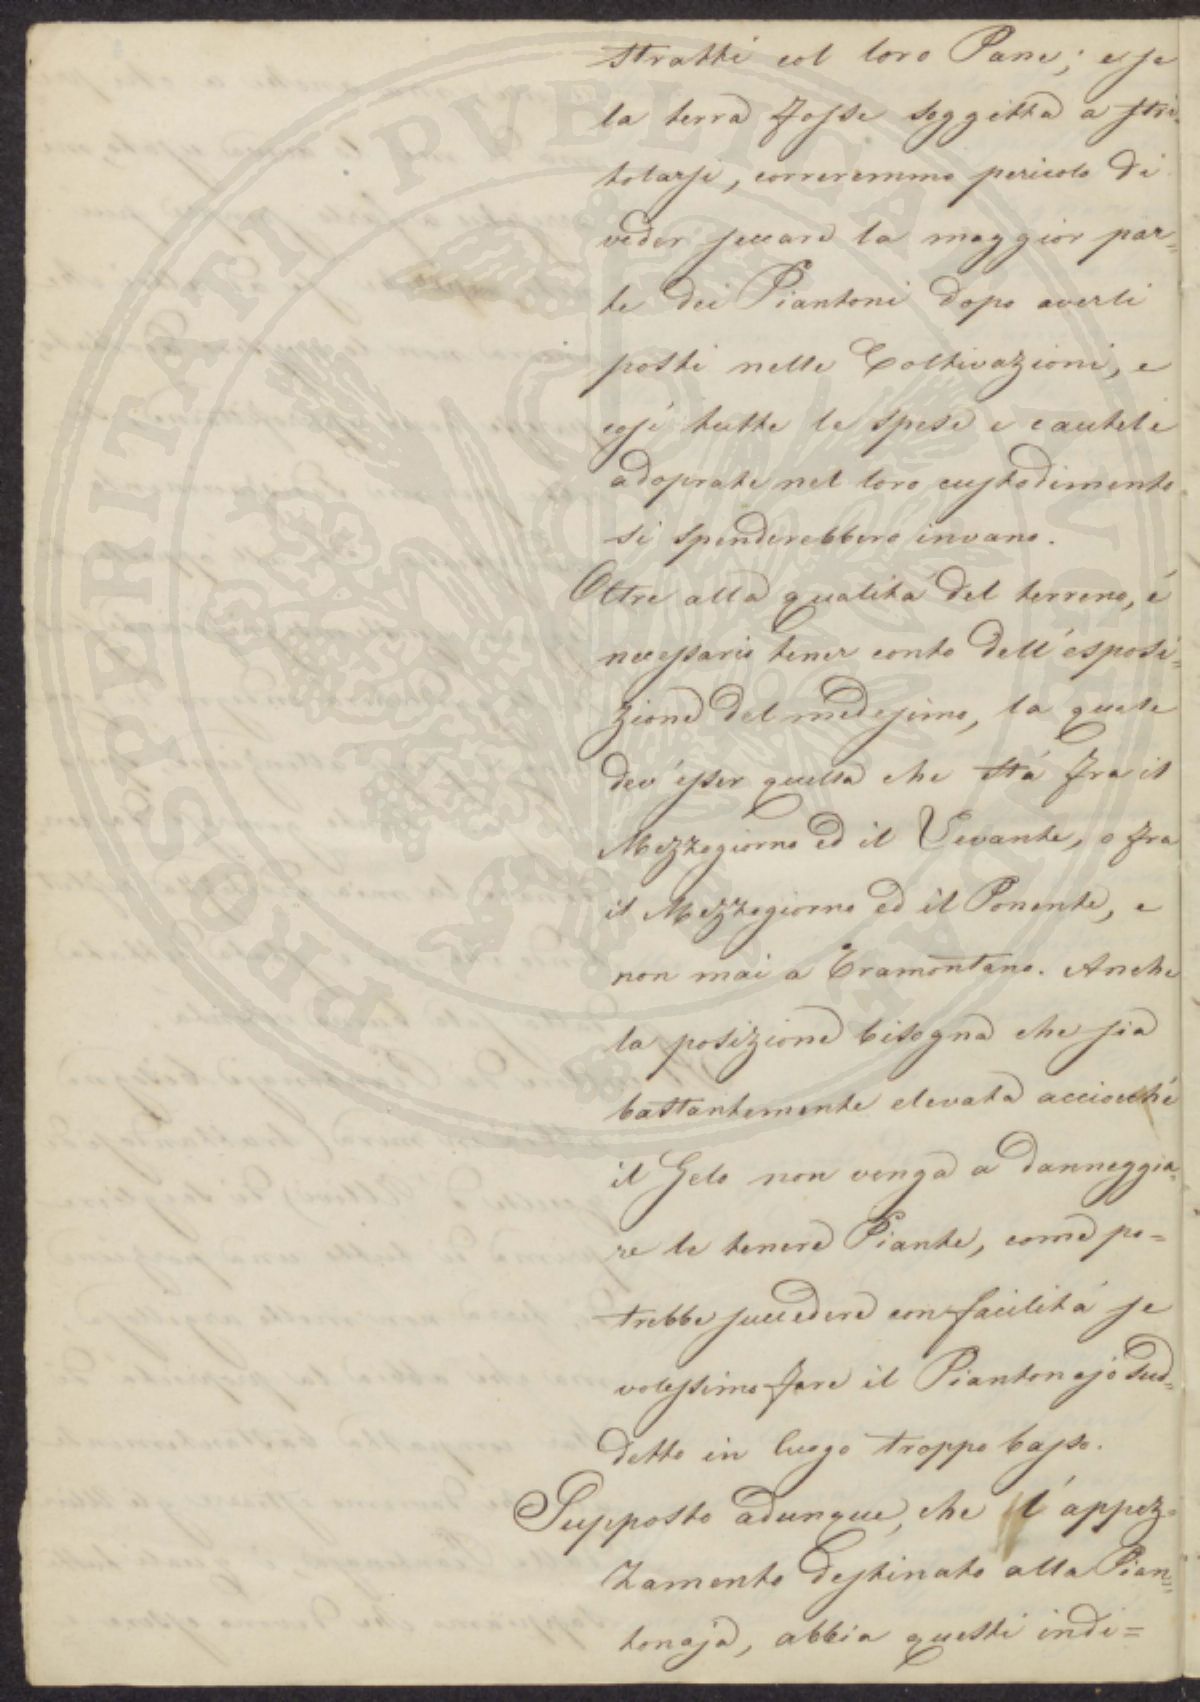 stratti col loro Pane; e se
la terra fosse soggetta a stri-
tolarsi, correremmo pericolo di
veder seccare la maggior par=
te dei Piantoni dopo averli
posti nelle Coltivazioni, e
così tutte le spese e cautele
adoprate nel loro custodimento
si spenderebbero invano.
Oltre alla qualitá del terreno, é
necessario tener conto dell'esposi=
zione del medesimo, la quale
dev'esser quella che stá fra il
Mezzogiorno ed il Levante, o fra
il Mezzogiorno ed il Ponente, e
non mai a Tramontano. Anche
la posizione bisogna che sia
bastantemente elevata acciocché
il Gelo non venga a danneggia=
re le tenere Piante, come po=
trebbe succedere con facilitá se
volessimo fare il Piantonajo sud=
detto in luogo troppo basso.
Supposto adunque, che l'appez=
zamento destinato alla Pian=
tonaja, abbia questi indi=
PROSPERITATI PVBLICAE AVGENDAE